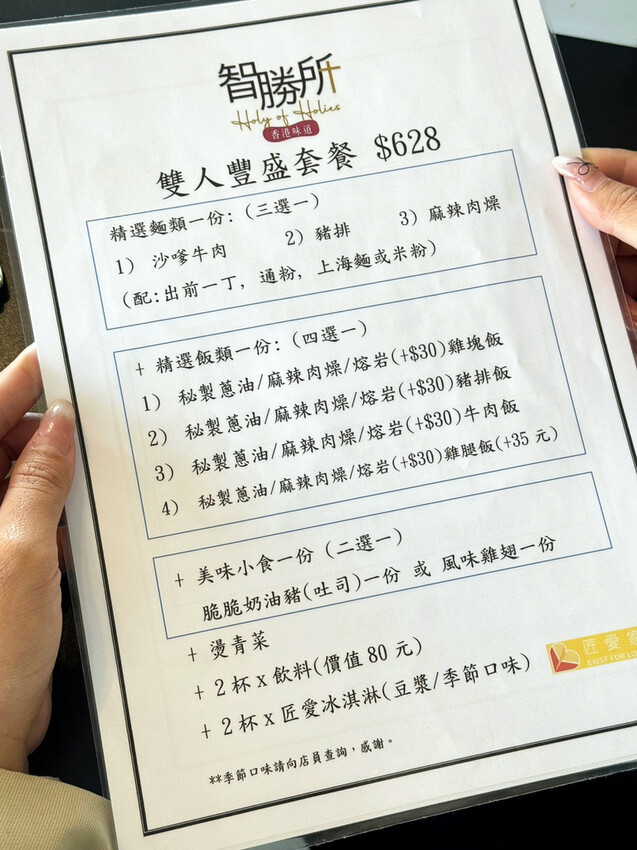 智勝所
Holy of Holies
香港味道
雙人豐盛套餐 $628
精選麵類一份:(三選一)
1) 沙嗲牛肉 2) 豬排 3) 麻辣肉燥
(配:出前一丁, 通粉, 上海麵或米粉)
+ 精選飯類一份:(四選一)
1) 秘製蔥油/麻辣肉燥/熔岩(+$30)雞塊飯
2) 秘製蔥油/麻辣肉燥/熔岩(+$30)豬排飯
3) 秘製蔥油/麻辣肉燥/熔岩(+$30)牛肉飯
4) 秘製蔥油/麻辣肉燥/熔岩(+$30)雞腿飯(+35 元)
+ 美味小食一份 (二選一)
脆脆奶油豬(吐司)一份 或 風味雞翅一份
+ 燙青菜
+ 2 杯 x 飲料(價值 80 元)
+ 2 杯 x 匠愛冰淇淋(豆漿/季節口味)
匠愛家
EXIST FOR LO
**季節口味請向店員查詢，感謝。